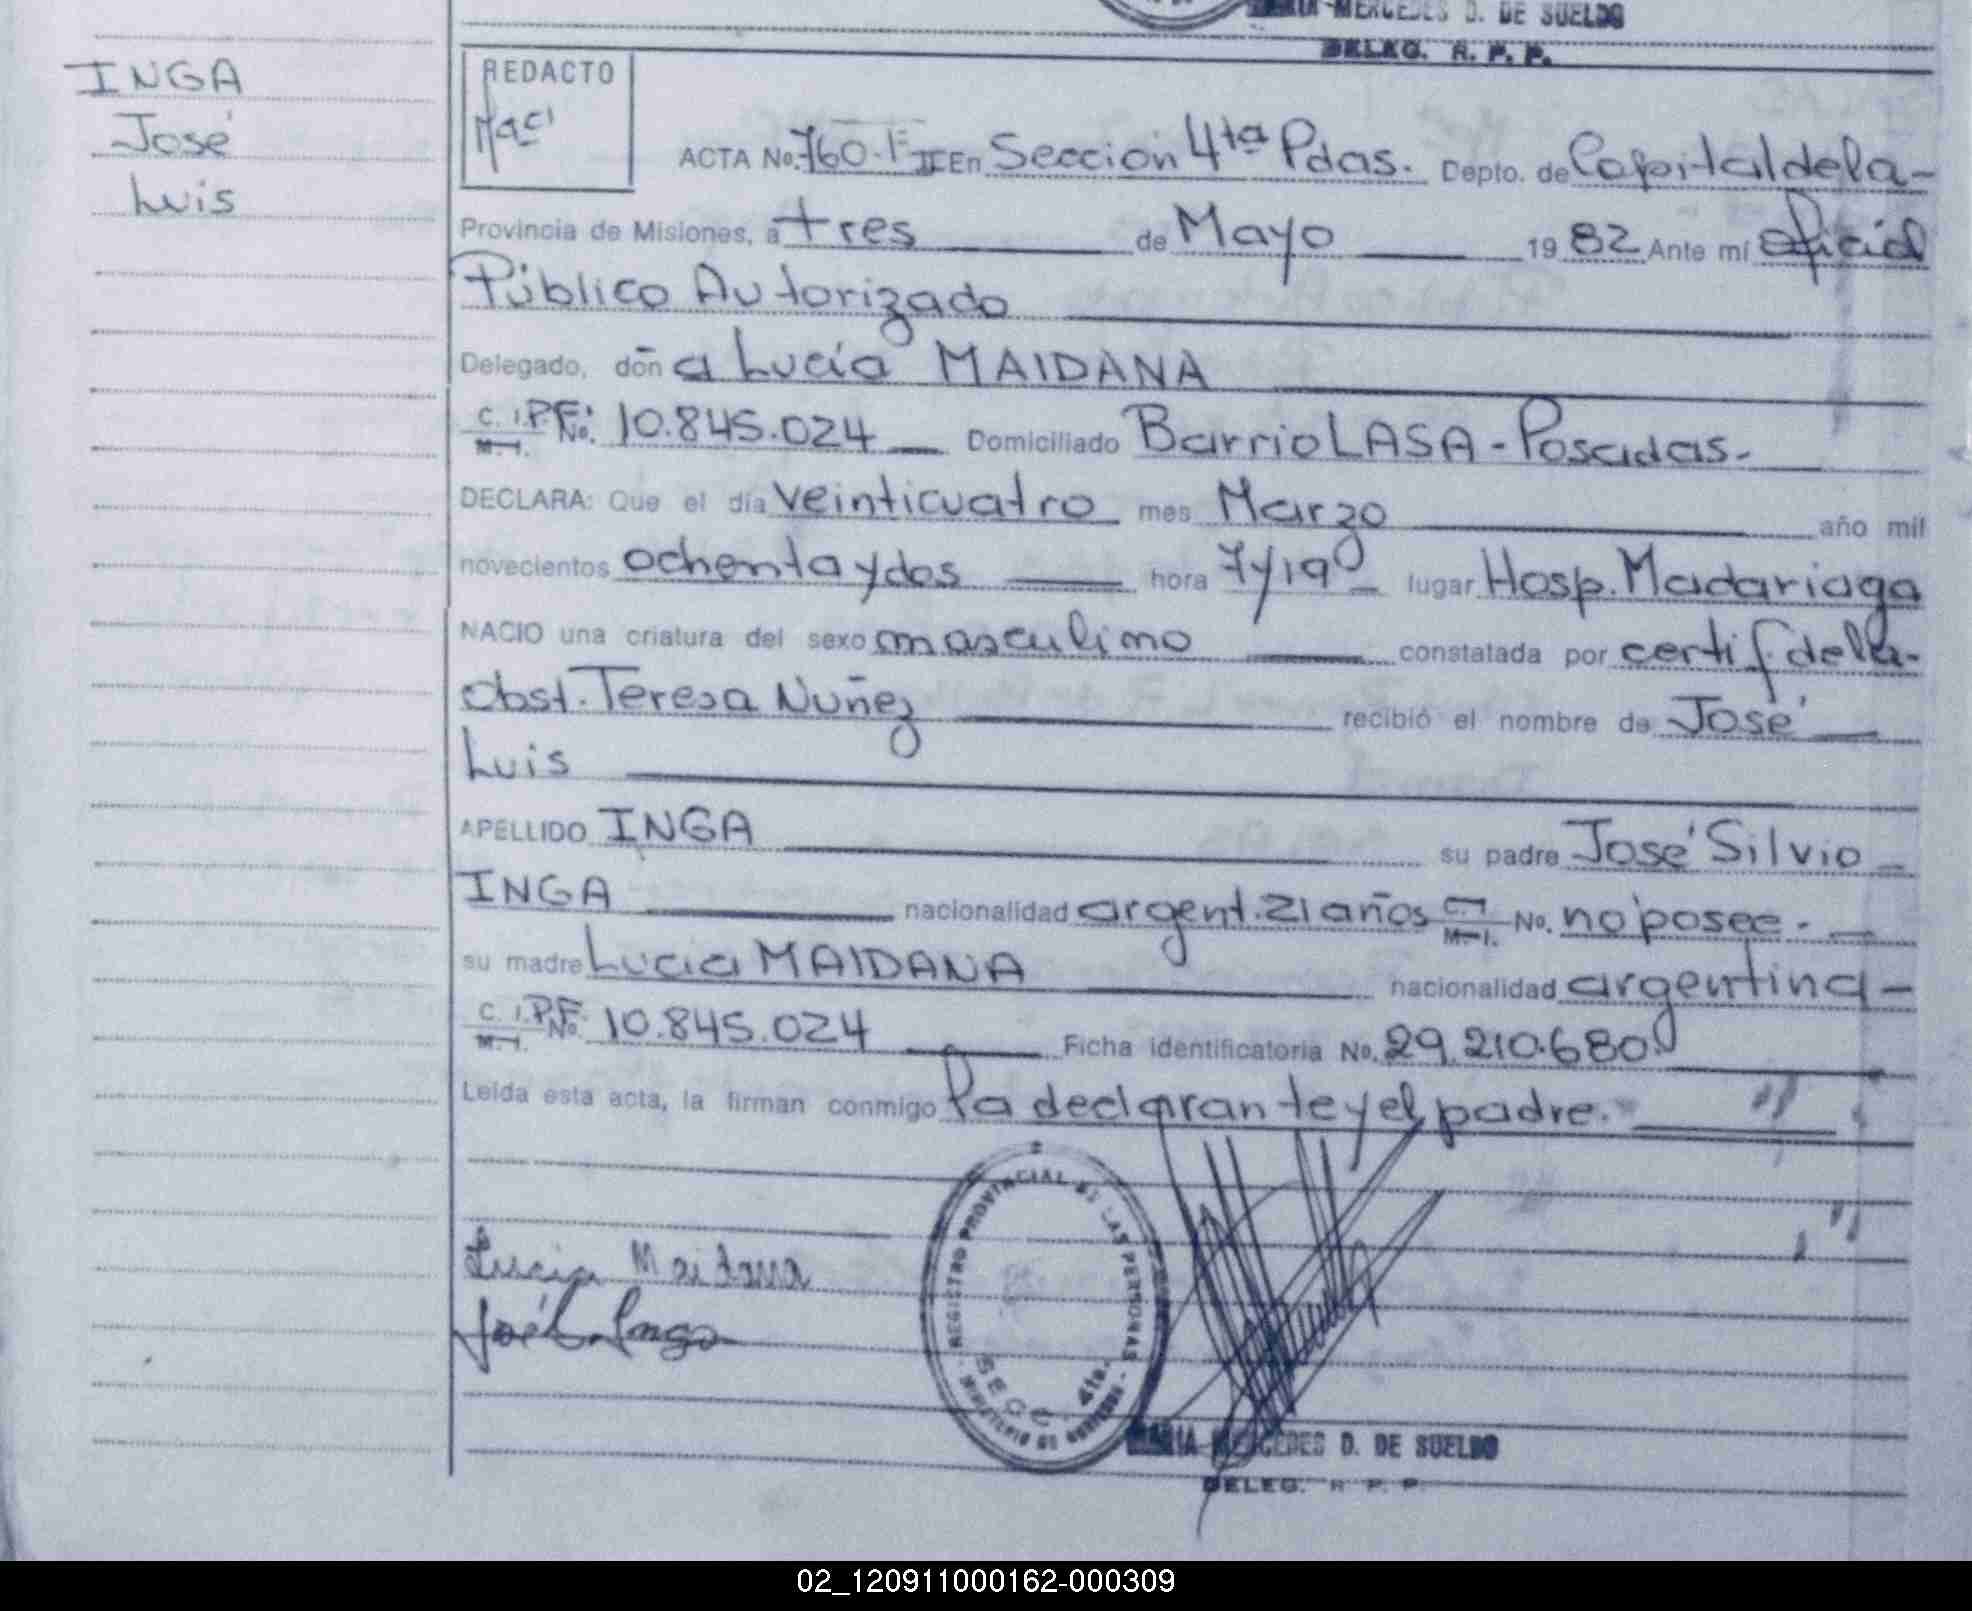 MARIA MERCEDES D. DE SUELDO
DELEG. R. P. P.
INGA
José
Luis
REDACTO
Nac.
ACTA No. 760. F II En Seccion 4ta Pdas. Depto. de Capital de la-
Provincia de Misiones, a tres de Mayo 1982 Ante mí Oficial
Público Autorizado
Delegado, doña Lucía MAIDANA
C. I. P.F. No. 10.845.024 Domiciliado Barrio LASA - Posadas.
M. I.
DECLARA: Que el día veinticuatro mes Marzo año mil
novecientos ochenta y dos hora 7 y 19 lugar Hosp. Madariaga
NACIO una criatura del sexo masculino constatada por certif. de la-
Obst. Teresa Nuñez recibió el nombre de José
Luis
APELLIDO INGA su padre José Silvio
INGA nacionalidad argent. 21 años C. I. No. no posee.
M. I.
su madre Lucia MAIDANA nacionalidad argentina-
C. I. P.F. No. 10.845.024 Ficha identificatoria No. 29.210.680
M. I.
Leída esta acta, la firman conmigo la declarante y el padre.
Lucia Maidana
José Inga
REGISTRO PROVINCIAL DE LAS PERSONAS
MINISTERIO DE GOBIERNO
SECC. 4ta.
MARIA MERCEDES D. DE SUELDO
DELEG. R. P. P.
02_120911000162-000309